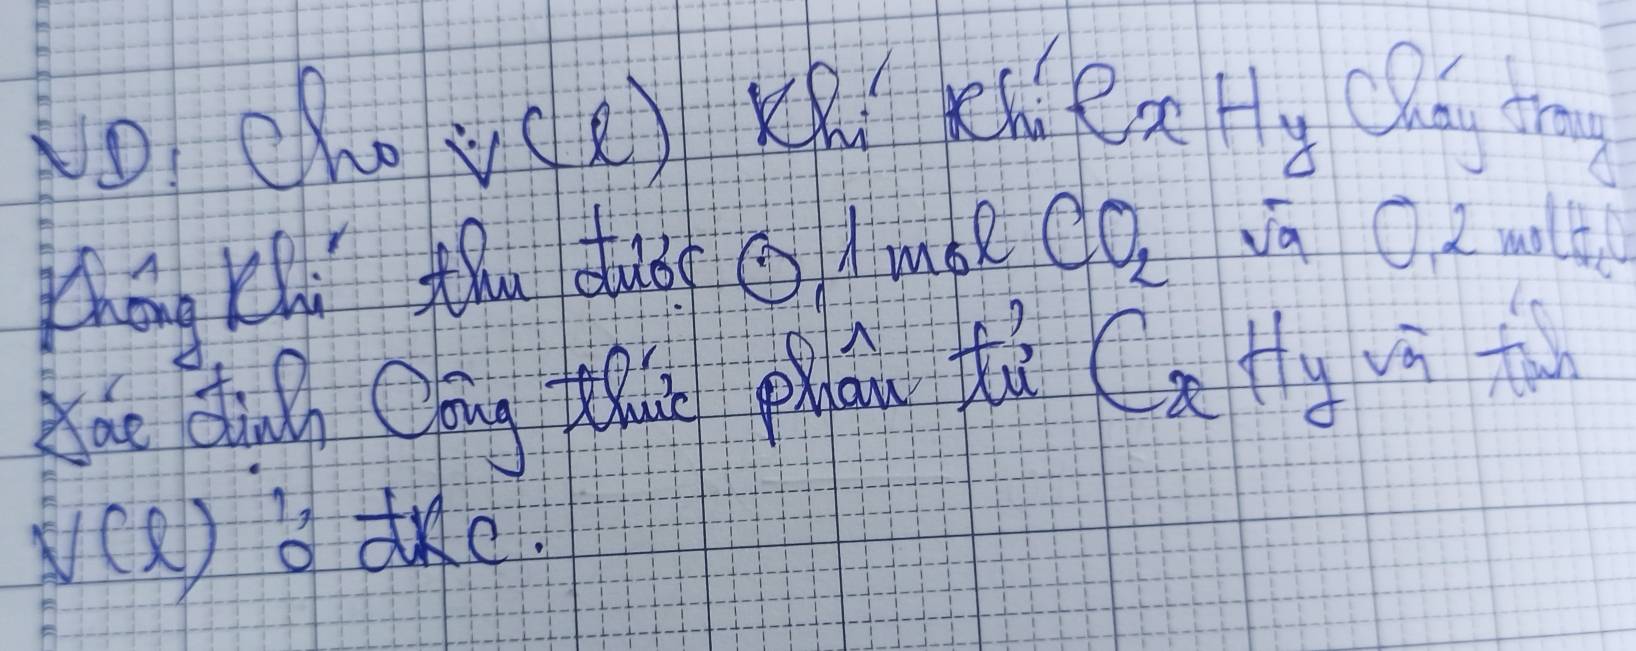 VD: Cho V(l) khí khí CxHy cháy trong
không khí thu được 0,1 mol CO2 và 0,2 mol H2O
Xác định Công thức phân tử CxHy và tính
V(l) ở đkc.